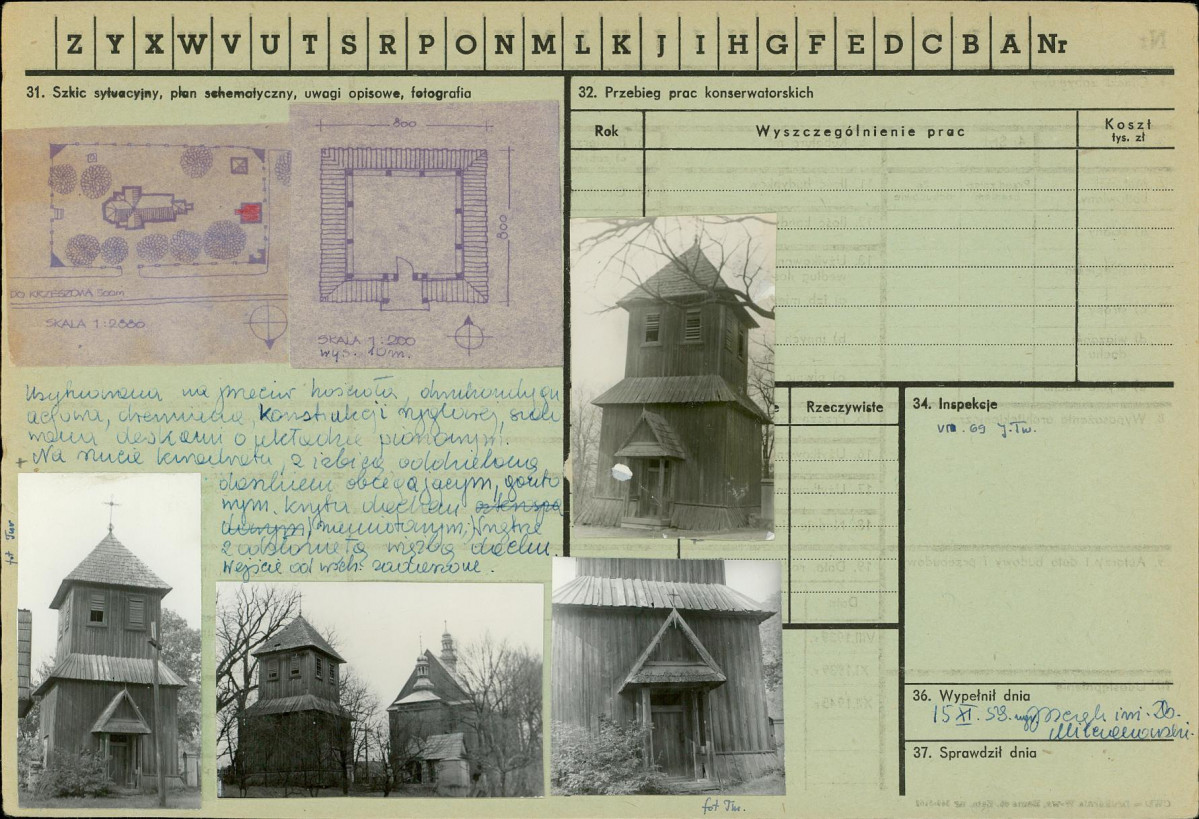 Z Y X W V U T S R P O N M L K J I H G F E D C B A Nr
31. Szkic sytuacyjny, plan schematyczny, uwagi opisowe, fotografia
800
800
DO KRZESZOWA 500m
SKALA 1:2880
SKALA 1:200
wys. 10 m.
Usytuowana na przeciw kościoła, dwukondygn
acjowa, drewniana, konstrukcji słupowej, szalo
wana deskami o układzie pionowym.
Na rzucie kwadratu, z izbicą oddzieloną
daszkiem obiegającym, gonto
nym. Kryta dachem
namiotowym, Wnętrze
z odsłoniętą więźbą dachu
Wejście od wsch. zadaszone.
fot Tur
fot Tw.
32. Przebieg prac konserwatorskich
Rok
Wyszczególnienie prac
Koszt
tys. zł
Rzeczywiste
34. Inspekcje
VIII. 69 J.Tw.
36. Wypełnił dnia
15 XI. 59.
37. Sprawdził dnia